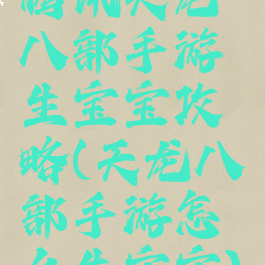 腾讯天龙
八部手游
生宝宝攻
略(天龙八
部手游怎
么生宝宝)